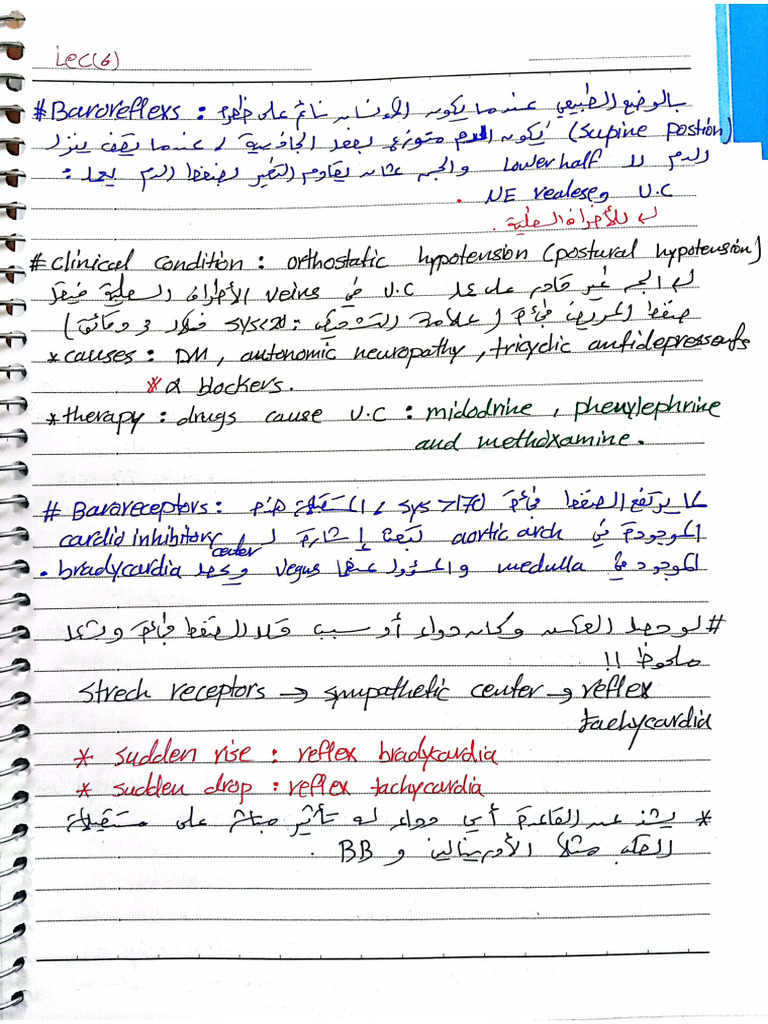 Lec(6)
# Baroreflexs : بالوضع الطبيعي عندما يكون الإنسان نائم على ظهره
(supine postion) يكون الدم متوزع بفعل الجاذبية و عندما يقف ينزل
الدم لل lower half والجسم عشان يقاوم التغير لضغط الدم يعمل :
V.C و NE realese .
للأطراف السفلية .
# clinical condition : orthostatic hypotension (postural hypotension)
الجسم غير قادر على عمل V.C في veins الأطراف السفلية
ضغط المريض فجأة ( علامة التشخيص : sys<20 خلال 3 دقائق )
* causes : DM , autonomic neuropathy , tricyclic antidepressants
* α blockers .
* therapy : drugs cause V.C : midodrine , phenylephrine
and methoxamine .
# Baroreceptors : لما يرتفع الضغط فجأة sys >170 ، المستقبلات
الموجودة في aortic arch تبعث إشارة لـ cardio inhibitory center
الموجود في medulla والمسؤول عنها vegus و يحصل bradycardia .
# لو حصل العكس وكان دواء أو سبب قلل الضغط فجأة وبشكل
ملحوظ !!
strech receptors → sympathetic center → reflex
tachycardia
* sudden rise : reflex bradycardia
* sudden drop : reflex tachycardia
* يشذ عن القاعدة أي دواء له تأثير مباشر على مستقبلات
القلب مثلاً الأدرينالين و BB .